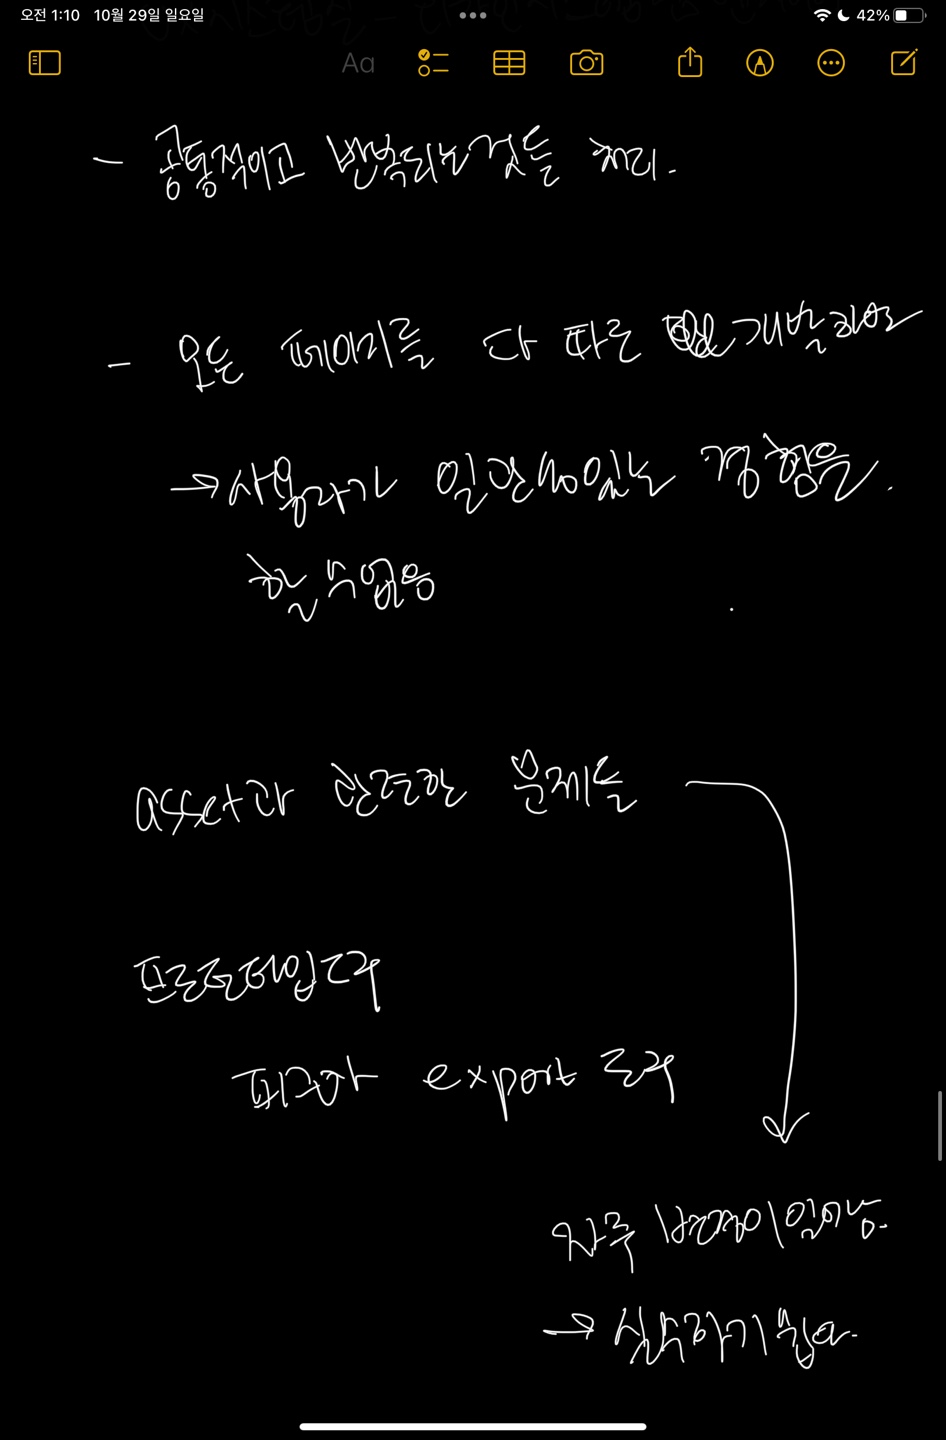 오전 1:10 10월 29일 일요일 42%
Aa
- 공통적이고 반복되는것들 처리.
- 모든 페이지를 다 따로 개발하면
→ 사용자가 일관성있는 경험을.
할 수 없음
asset과 관련한 문제들
프로토타입 도구
피그마 export 도구
자주 변경이 일어남.
→ 실수하기 쉽다.